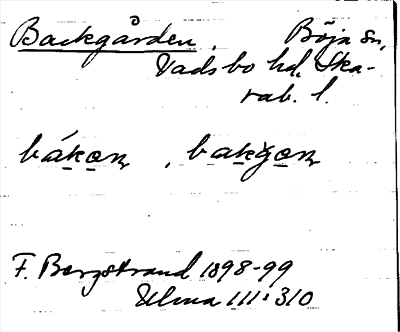 Backgården, Böja sn,
Vadsbo hd, Ska-
rab. l.
bákan, bakgan
F. Bergstrand 1898-99
Ulma 111:310